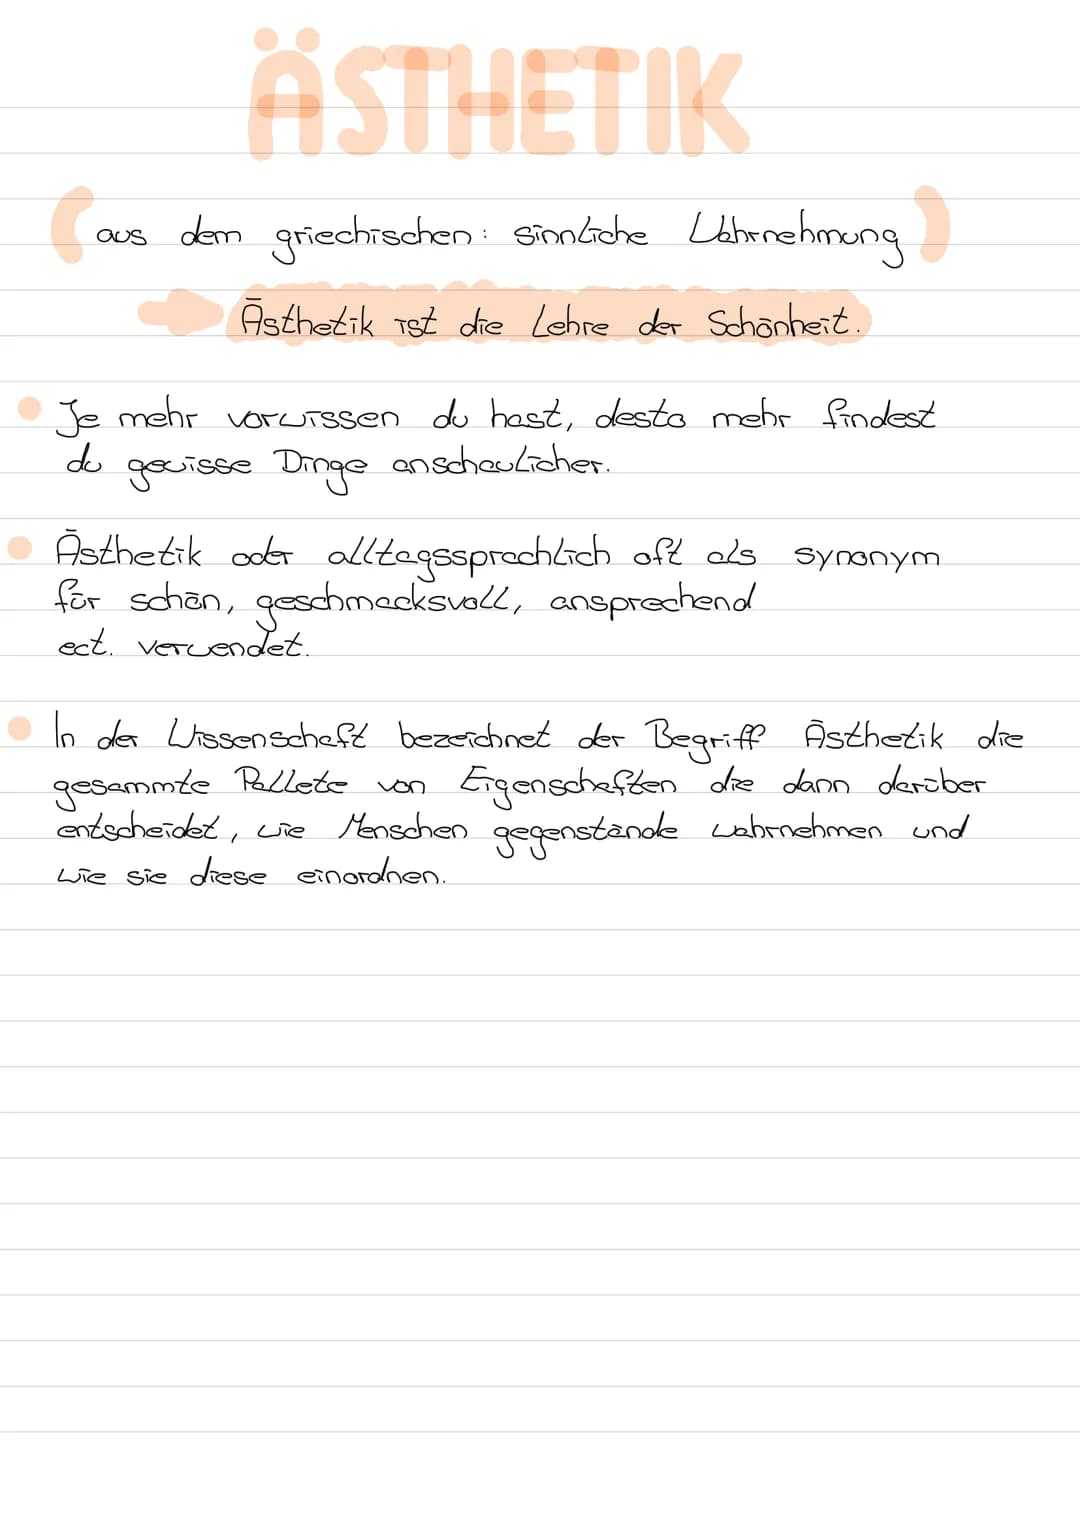 ÄSTHETIK
(aus dem griechischen: sinnliche Wahrnehmung)
Ästhetik ist die Lehre der Schönheit.
Je mehr vorwissen du hast, desto mehr findest
du gewisse Dinge anschaulicher.
Ästhetik oder alltagssprachlich oft als synonym
für schön, geschmacksvoll, ansprechend
ect. verwendet.
In der Wissenschaft bezeichnet der Begriff Ästhetik die
gesammte Pallete von Eigenschaften die dann darüber
entscheidet, wie Menschen gegenstände wahrnehmen und
wie sie diese einordnen.